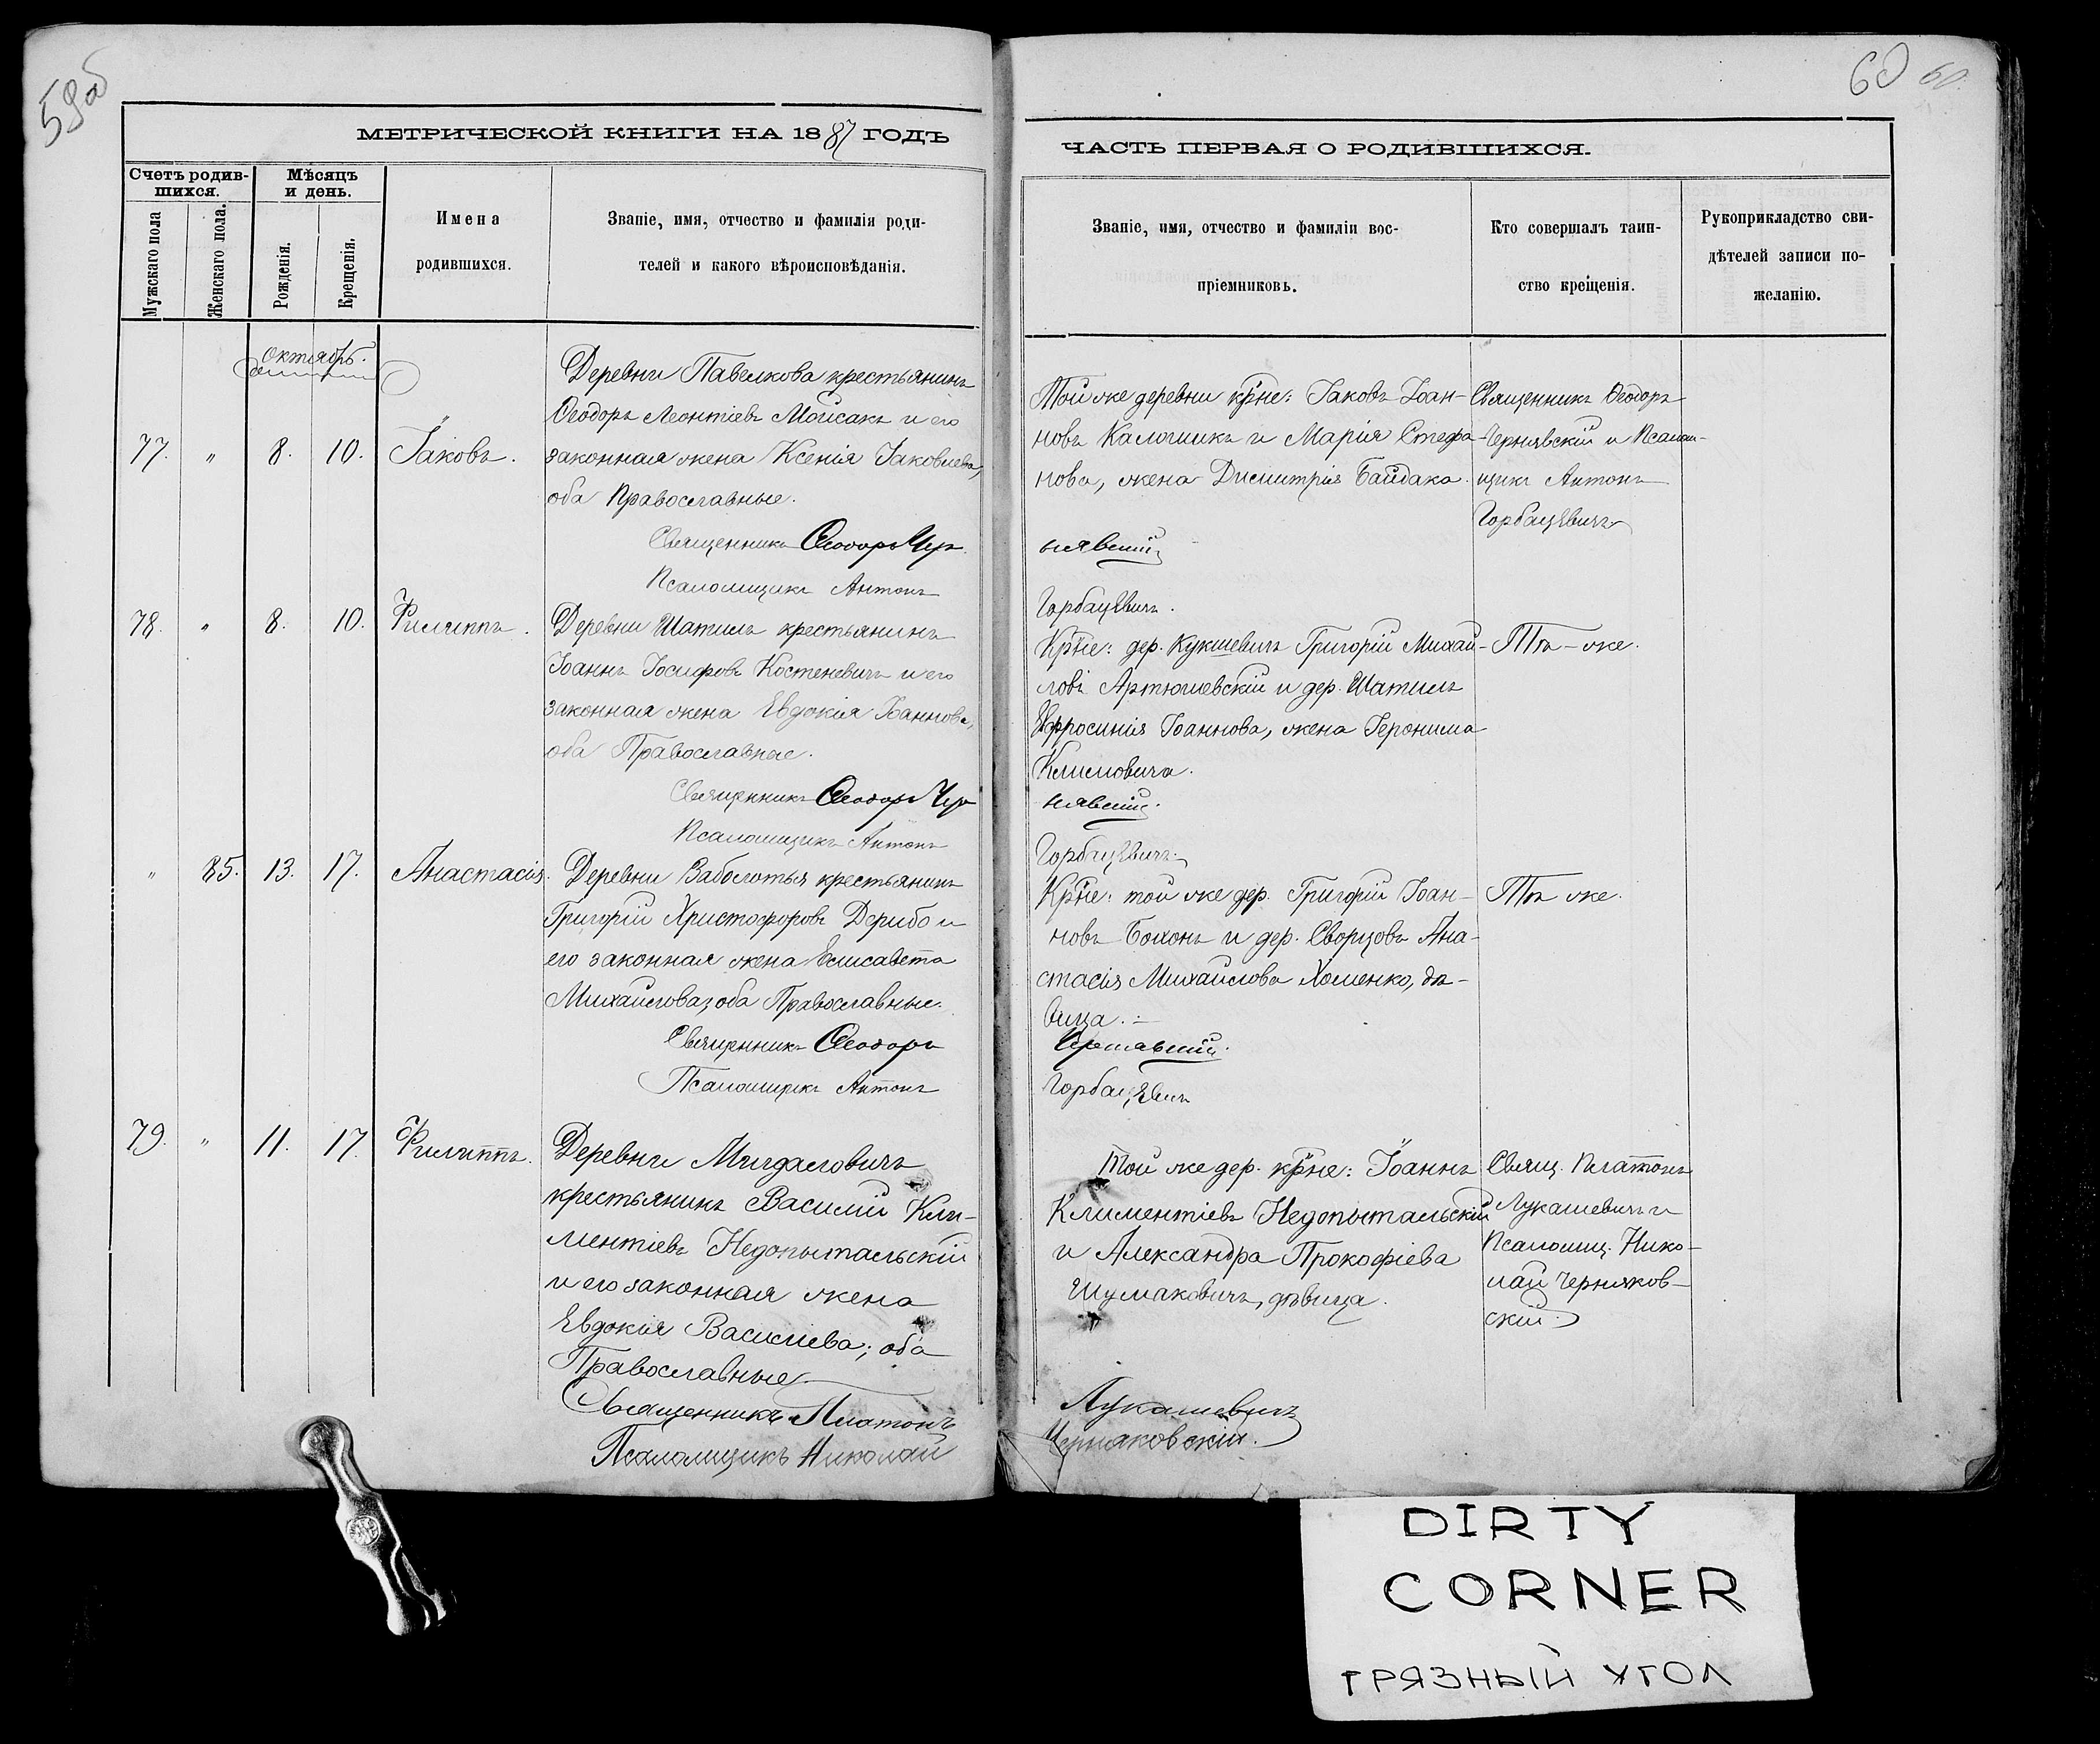 59об
МЕТРИЧЕСКОЙ КНИГИ НА 1887 ГОДЪ
Счетъ родив-
шихся.
Мѣсяцъ
и день.
Мужскаго пола
Женскаго пола.
Рожденія.
Крещенія.
Имена
родившихся.
Званіе, имя, отчество и фамилія роди-
телей и какого вѣроисповѣданія.
Октябрь.
77. " 8. 10. Іаковъ.
Деревни Павелкова крестьянинъ
Ѳеодоръ Леонтіевъ Мойсакъ и его
законная жена Ксенія Іаковлева,
оба Православные.
Священникъ Ѳеодоръ Чер
Псаломщикъ Антонъ
78. " 8. 10. Филиппъ.
Деревни Шатилъ крестьянинъ
Іоаннъ Іосифовъ Костеневичъ и его
законная жена Евдокія Іоаннова,
оба Православные.
Священникъ Ѳеодоръ Чер
Псаломщикъ Антонъ
" 85. 13. 17. Анастасія.
Деревни Заболотья крестьянинъ
Григорій Христофоровъ Дерибо и
его законная жена Елисавета
Михайлова, оба Православные.
Священникъ Ѳеодоръ
Псаломщикъ Антонъ
79. " 11. 17. Филиппъ.
Деревни Мигдаловичъ
крестьянинъ Василій Кли-
ментіевъ Недопытальскій
и его законная жена
Евдокія Василіева; оба
Православные.
Священникъ Платонъ
Псаломщикъ Николай
60 60.
ЧАСТЬ ПЕРВАЯ О РОДИВШИХСЯ.
Званіе, имя, отчество и фамиліи вос-
пріемниковъ.
Кто совершалъ таин-
ство крещенія.
Рукоприкладство сви-
дѣтелей записи по-
желанію.
Той же деревни крне: Іаковъ Іоан-
новъ Калошикъ и Марія Стефа-
нова, жена Димитрія Байдака.
Священникъ Ѳеодоръ
Чернявскій и Псалом-
щикъ Антонъ
Горбацевичъ
нявскій
Горбацевичъ.
Крне: дер. Кукшевичъ Григорій Михай-
ловъ Артюшевскій и дер. Шатилъ
Евфросинія Іоаннова, жена Іеронима
Климовича.
Тѣ-же.
нявскій.
Горбацевичъ.
Крне: той же дер. Григорій Іоан-
новъ Бохонъ и дер. Сворцовъ Ана-
стасія Михайлова Хоменко, дѣ-
вица.
Тѣ же.
Чернявскій.
Горбацевичъ
Той же дер. крне: Іоаннъ
Климентіевъ Недопытальскій
и Александра Прокофіева
Шумаковичъ, дѣвица.
Свящ. Платонъ
Лукашевичъ и
Псаломщ. Нико-
лай Черняков-
скій.
Лукашевичъ
Черняковскій.
DIRTY
CORNER
ГРЯЗНЫЙ УГОЛ